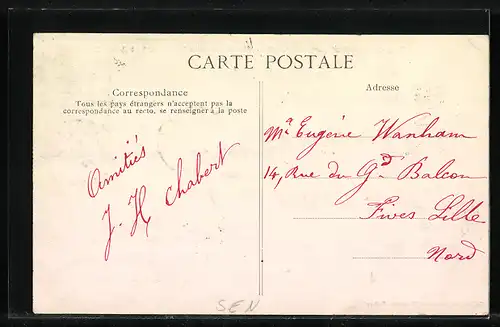 CARTE POSTALE
Correspondance
Tous les pays étrangers n'acceptent pas la
correspondance au recto, se renseigner à la poste
Amitiés
J. H. Chabert
Adresse
Mr Eugène Wanham
14, Rue du Gd Balcon
Fives Lille
Nord
SEN